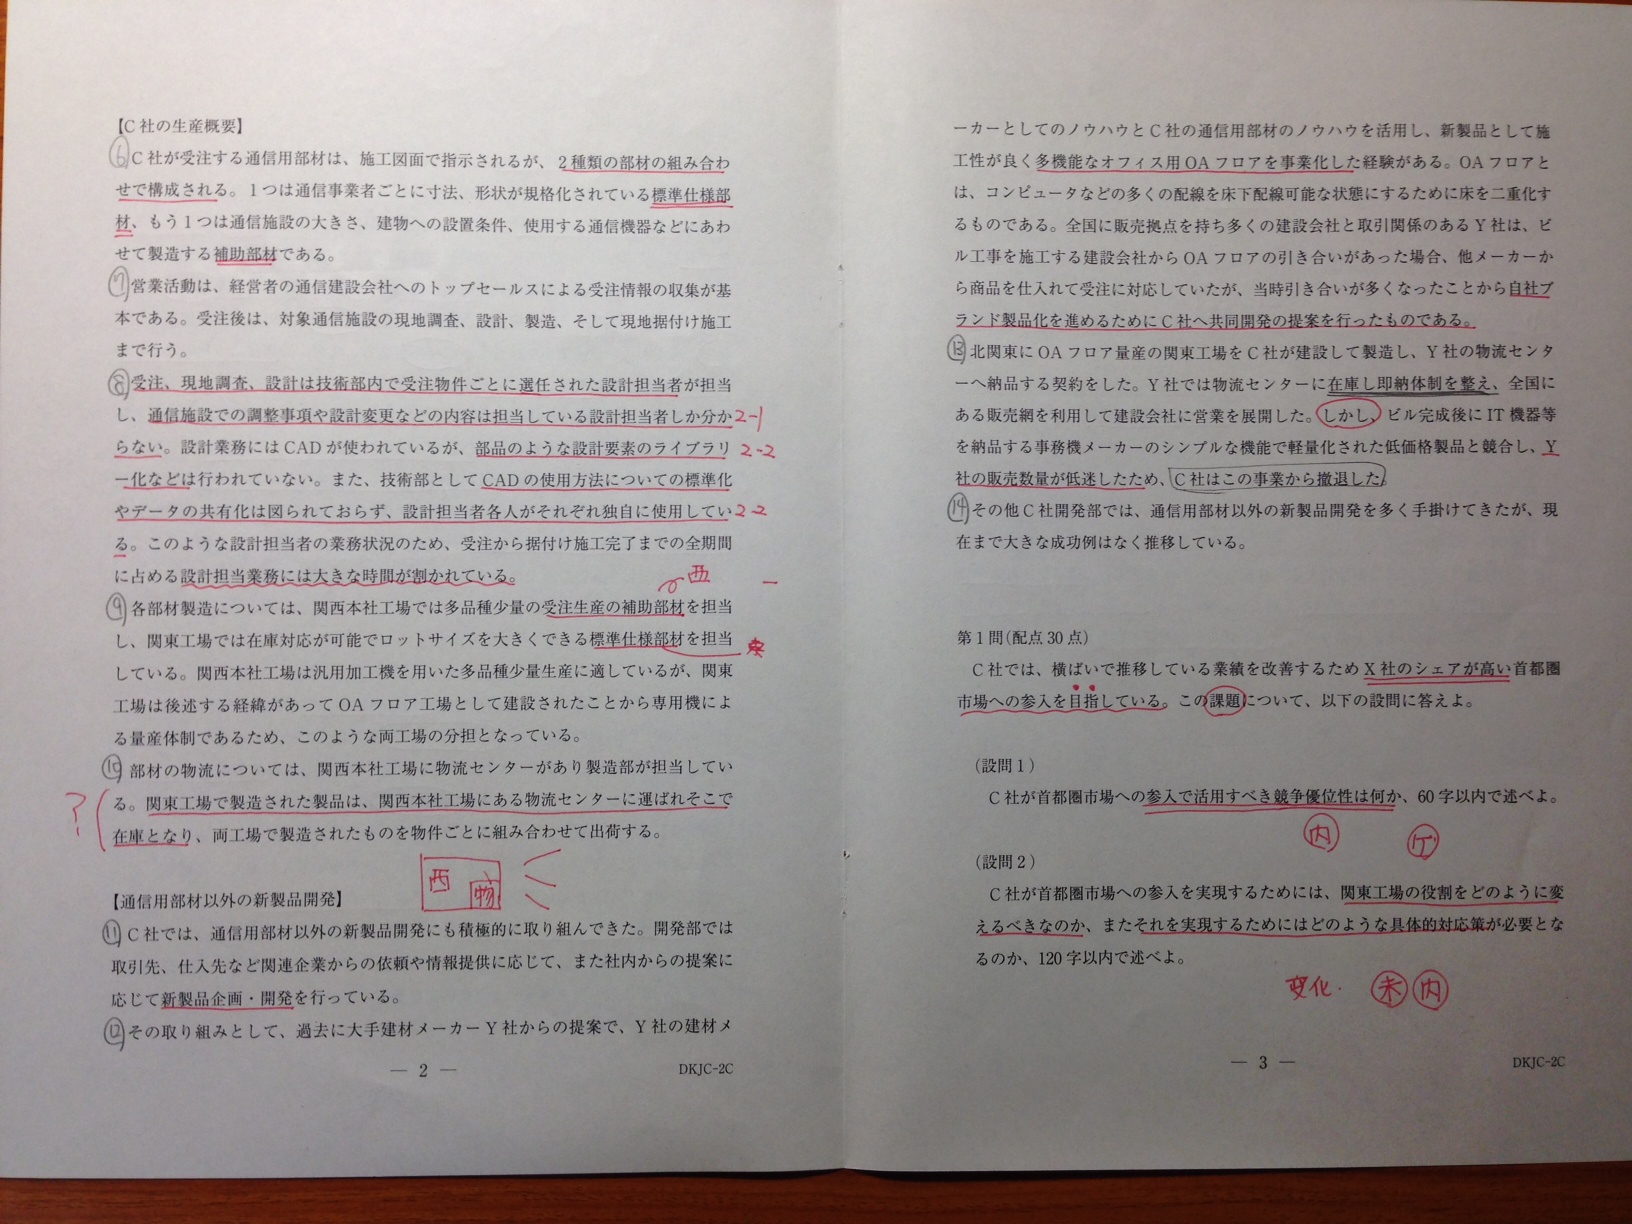 【C社の生産概要】
⑥C社が受注する通信用部材は、施工図面で指示されるが、2種類の部材の組み合わ
せで構成される。1つは通信事業者ごとに寸法、形状が規格化されている標準仕様部
材、もう1つは通信施設の大きさ、建物への設置条件、使用する通信機器などにあわ
せて製造する補助部材である。
⑦営業活動は、経営者の通信建設会社へのトップセールスによる受注情報の収集が基
本である。受注後は、対象通信施設の現地調査、設計、製造、そして現地据付け施工
まで行う。
⑧受注、現地調査、設計は技術部内で受注物件ごとに選任された設計担当者が担当
し、通信施設での調整事項や設計変更などの内容は担当している設計担当者しか分か 2-1
らない。設計業務にはCADが使われているが、部品のような設計要素のライブラリ 2-2
ー化などは行われていない。また、技術部としてCADの使用方法についての標準化
やデータの共有化は図られておらず、設計担当者各人がそれぞれ独自に使用してい 2-2
る。このような設計担当者の業務状況のため、受注から据付け施工完了までの全期間
に占める設計担当業務には大きな時間が割かれている。
西
⑨各部材製造については、関西本社工場では多品種少量の受注生産の補助部材を担当
し、関東工場では在庫対応が可能でロットサイズを大きくできる標準仕様部材を担当 東
している。関西本社工場は汎用加工機を用いた多品種少量生産に適しているが、関東
工場は後述する経緯があってOAフロア工場として建設されたことから専用機によ
る量産体制であるため、このような両工場の分担となっている。
⑩部材の物流については、関西本社工場に物流センターがあり製造部が担当してい
? る。関東工場で製造された製品は、関西本社工場にある物流センターに運ばれそこで
在庫となり、両工場で製造されたものを物件ごとに組み合わせて出荷する。
西 物
【通信用部材以外の新製品開発】
⑪C社では、通信用部材以外の新製品開発にも積極的に取り組んできた。開発部では
取引先、仕入先など関連企業からの依頼や情報提供に応じて、また社内からの提案に
応じて新製品企画・開発を行っている。
⑫その取り組みとして、過去に大手建材メーカーY社からの提案で、Y社の建材メ
— 2 —
DKJC-2C
ーカーとしてのノウハウとC社の通信用部材のノウハウを活用し、新製品として施
工性が良く多機能なオフィス用OAフロアを事業化した経験がある。OAフロアと
は、コンピュータなどの多くの配線を床下配線可能な状態にするために床を二重化す
るものである。全国に販売拠点を持ち多くの建設会社と取引関係のあるY社は、ビ
ル工事を施工する建設会社からOAフロアの引き合いがあった場合、他メーカーか
ら商品を仕入れて受注に対応していたが、当時引き合いが多くなったことから自社ブ
ランド製品化を進めるためにC社へ共同開発の提案を行ったものである。
⑬北関東にOAフロア量産の関東工場をC社が建設して製造し、Y社の物流センタ
ーへ納品する契約をした。Y社では物流センターに在庫し即納体制を整え、全国に
ある販売網を利用して建設会社に営業を展開した。しかし、ビル完成後にIT機器等
を納品する事務機メーカーのシンプルな機能で軽量化された低価格製品と競合し、Y
社の販売数量が低迷したため、C社はこの事業から撤退した。
⑭その他C社開発部では、通信用部材以外の新製品開発を多く手掛けてきたが、現
在まで大きな成功例はなく推移している。
第1問(配点30点)
C社では、横ばいで推移している業績を改善するためX社のシェアが高い首都圏
市場への参入を目指している。この課題について、以下の設問に答えよ。
(設問1)
C社が首都圏市場への参入で活用すべき競争優位性は何か、60字以内で述べよ。
内 ゲ
(設問2)
C社が首都圏市場への参入を実現するためには、関東工場の役割をどのように変
えるべきなのか、またそれを実現するためにはどのような具体的対応策が必要とな
るのか、120字以内で述べよ。
変化. 未 内
— 3 —
DKJC-2C